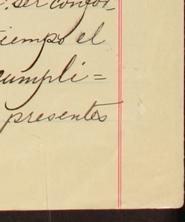 ser confor
tiempo el
cumpli=
presentes